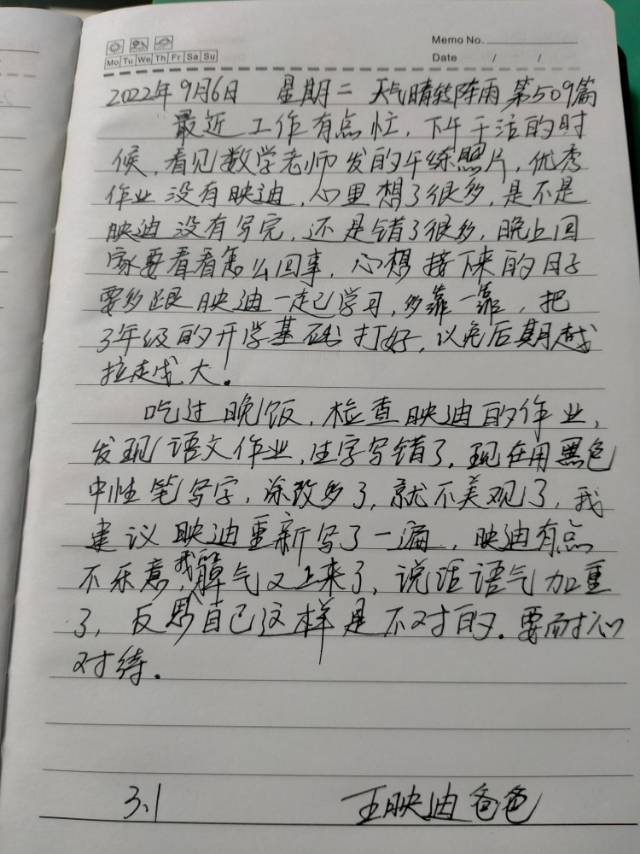 Memo No.
Mo Tu We Th Fr Sa Su
Date / /
2022年9月6日 星期二 天气晴转阵雨 第509篇
最近工作有点忙,下午干活的时
候,看见数学老师发的午练照片,优秀
作业没有映迪,心里想了很多,是不是
映迪没有写完,还是错了很多,晚上回
家要看看怎么回事,心想接下来的日子
要多跟映迪一起学习,多靠一靠,把
3年级的开学基础打好,以免后期越
拉越大。
吃过晚饭,检查映迪的作业,
发现语文作业,生字写错了,现在用黑色
中性笔写字,涂改多了,就不美观了,我
建议映迪重新写了一遍,映迪有点
不乐意,我的脾气又上来了,说话语气加重
了,反思自己这样是不对的.要耐心
对待.
3.1 王映迪爸爸